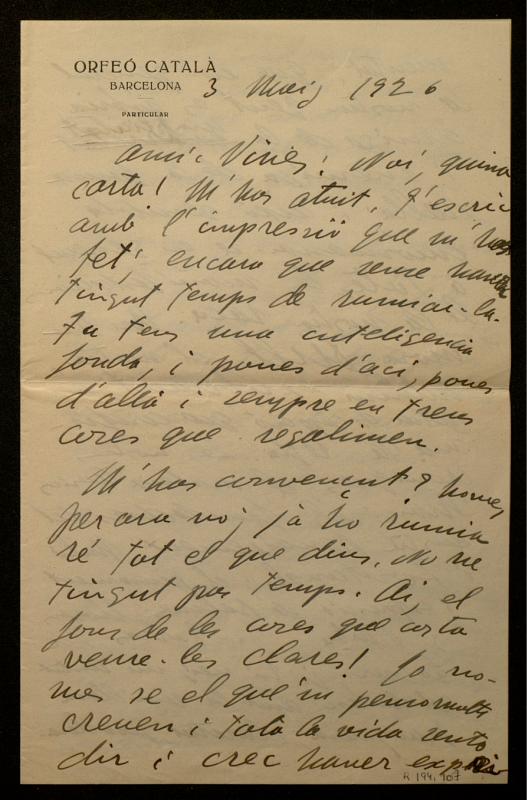 ORFEÓ CATALÀ
BARCELONA
PARTICULAR
3 Maig 1926
Amic Vinies: Noi, quina
carta! M'has atuit. T'escric
amb l'impressió que m'has
fet, encara que sense haver
tingut temps de rumiar-la.
Tu tens una inteligencia
fonda, i poues d'aci, poues
d'allà i sempre en treus
coses que regalimen.
M'has convençut? home,
per ara no; ja ho rumia
ré tot el que dius. No he
tingut pas temps. Ai, el
fons de les coses que costa
veure-les clares! Jo no-
mes se el que'm penso molts
creuen i tota la vida sento
dir i crec haver
R 194, 107